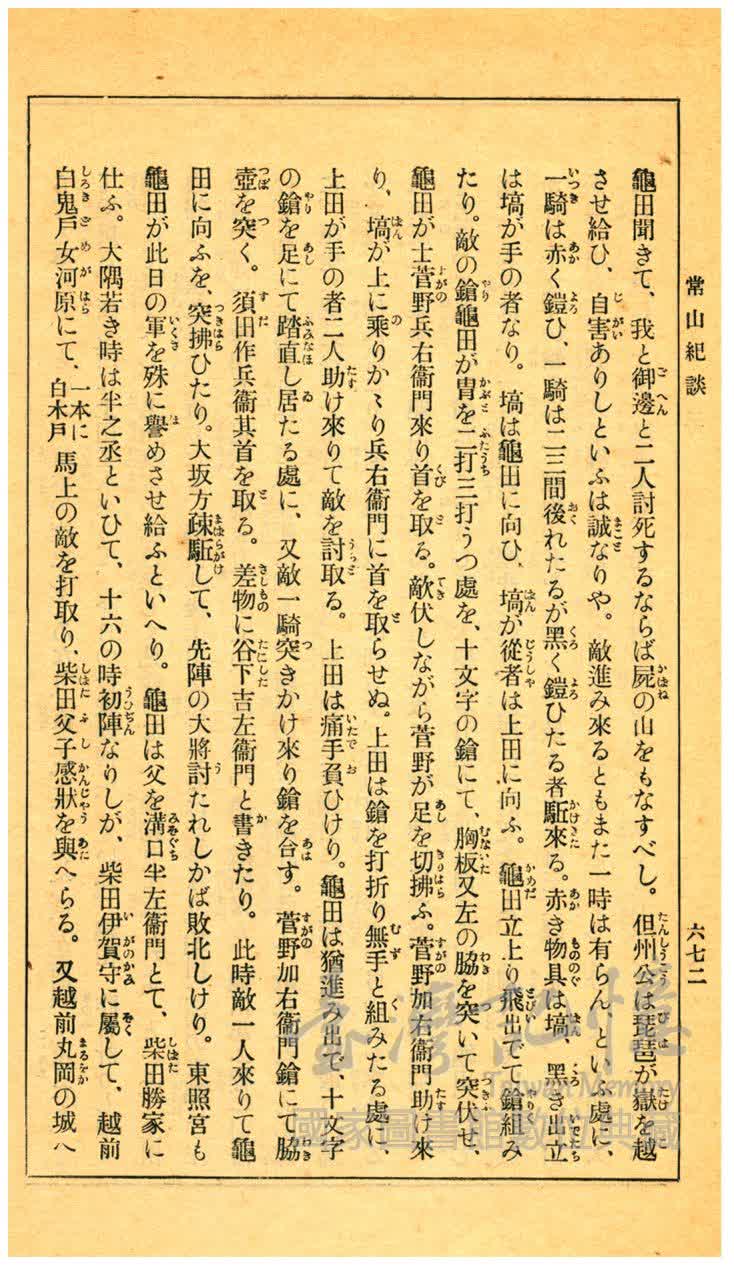 常山紀談
六七二
龜田聞きて、我と御邊と二人討死するならば屍の山をもなすべし。但州公は琵琶が嶽を越
させ給ひ、自害ありしといふは誠なりや。敵進み來るともまた一時は有らん、といふ處に、
一騎は赤く鎧ひ、一騎は二三間後れたるが黑く鎧ひたる者駈來る。赤き物具は塙、黑き出立
は塙が手の者なり。塙は龜田に向ひ、塙が從者は上田に向ふ。龜田立上り飛出でて鎗組み
たり。敵の鎗龜田が冑を二打三打うつ處を、十文字の鎗にて、胸板又左の脇を突いて突伏せ、
龜田が士菅野兵右衞門來り首を取る。敵伏しながら菅野が足を切拂ふ。菅野加右衞門助け來
り、塙が上に乘りかゝり兵右衞門に首を取らせぬ。上田は鎗を打折り無手と組みたる處に、
上田が手の者二人助け來りて敵を討取る。上田は痛手負ひけり。龜田は猶進み出で、十文字
の鎗を足にて踏直し居たる處に、又敵一騎突きかけ來り鎗を合す。菅野加右衞門鎗にて脇
壺を突く。須田作兵衞其首を取る。差物に谷下吉左衞門と書きたり。此時敵一人來りて龜
田に向ふを、突拂ひたり。大坂方疎駈して、先陣の大將討たれしかば敗北しけり。東照宮も
龜田が此日の軍を殊に譽めさせ給ふといへり。龜田は父を溝口半左衞門とて、柴田勝家に
仕ふ。大隅若き時は半之丞といひて、十六の時初陣なりしが、柴田伊賀守に屬して、越前
白鬼戸女河原にて、一本に白木戸馬上の敵を打取り、柴田父子感狀を與へらる。又越前丸岡の城へ
Taiwan Memory
國家圖書館數位典藏